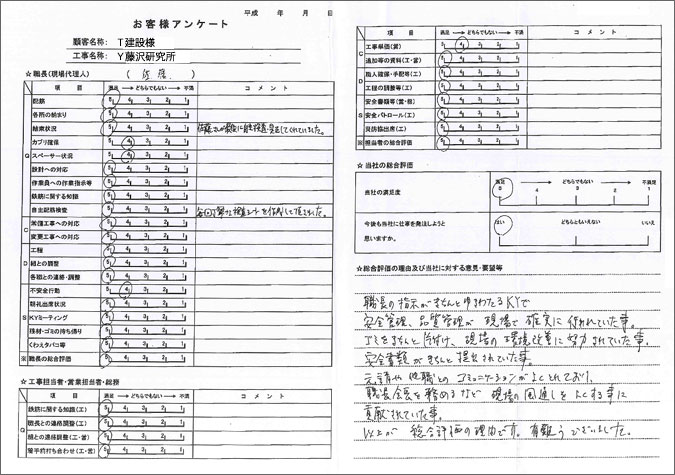 平成　　年　　月　　日
お客様アンケート
顧客名称： T建設様
工事名称： Y藤沢研究所
☆職長（現場代理人） （ 佐藤 ）
項　目 満足 ← どちらでもない → 不満 コメント
Q 配筋 5 4 3 2 1
各所の納まり 5 4 3 2 1
結束状況 5 4 3 2 1
カブリ確保 5 4 3 2 1
スペーサー状況 5 4 3 2 1
設計への対応 5 4 3 2 1
作業員への作業指示等 5 4 3 2 1
鉄筋に関する知識 5 4 3 2 1
自主配筋検査 5 4 3 2 1
C 常傭工事への対応 5 4 3 2 1
変更工事への対応 5 4 3 2 1
D 工程 5 4 3 2 1
組との調整 5 4 3 2 1
各職との連絡・調整 5 4 3 2 1
S 不安全行動 5 4 3 2 1
朝礼出席状況 5 4 3 2 1
KYミーティング 5 4 3 2 1
残材・ゴミの持ち帰り 5 4 3 2 1
くわえタバコ等 5 4 3 2 1
※ 職長の総合評価 5 4 3 2 1
☆工事担当者・営業担当者・総務
項　目 満足 ← どちらでもない → 不満 コメント
Q 鉄筋に関する知識(工) 5 4 3 2 1
職長との連絡調整(工) 5 4 3 2 1
組との連絡調整(工・営) 5 4 3 2 1
着手前打ち合わせ(工・営) 5 4 3 2 1
項　目 満足 ← どちらでもない → 不満 コメント
C 工事単価(営) 5 4 3 2 1
追加等の資料(工・営) 5 4 3 2 1
D 職人確保・手配等(工) 5 4 3 2 1
工程の調整等(工) 5 4 3 2 1
S 安全書類等(営・総) 5 4 3 2 1
安全パトロール(工) 5 4 3 2 1
災防協出席(工) 5 4 3 2 1
※ 担当者の総合評価 5 4 3 2 1
☆当社の総合評価
当社の満足度 満足 ← どちらでもない → 不満足
5 4 3 2 1
今後も当社に仕事を発注しようと はい どちらともいえない いいえ
思いますか。
☆総合評価の理由及び当社に対する意見・要望等
職長の指示がきちんと行きわたるKYで
安全管理、品質管理が現場で確実に作れていた事。
ゴミをきちんと片付け、現場の環境改善に努力されていた事。
安全書類がきちんと提出されていた事。
元請や他職とのコミュニケーションがよくとれており、
職長会長を務めるなど現場の風通しをよくする事に
貢献されていた事。
以上が総合評価の理由です。有難うございました。